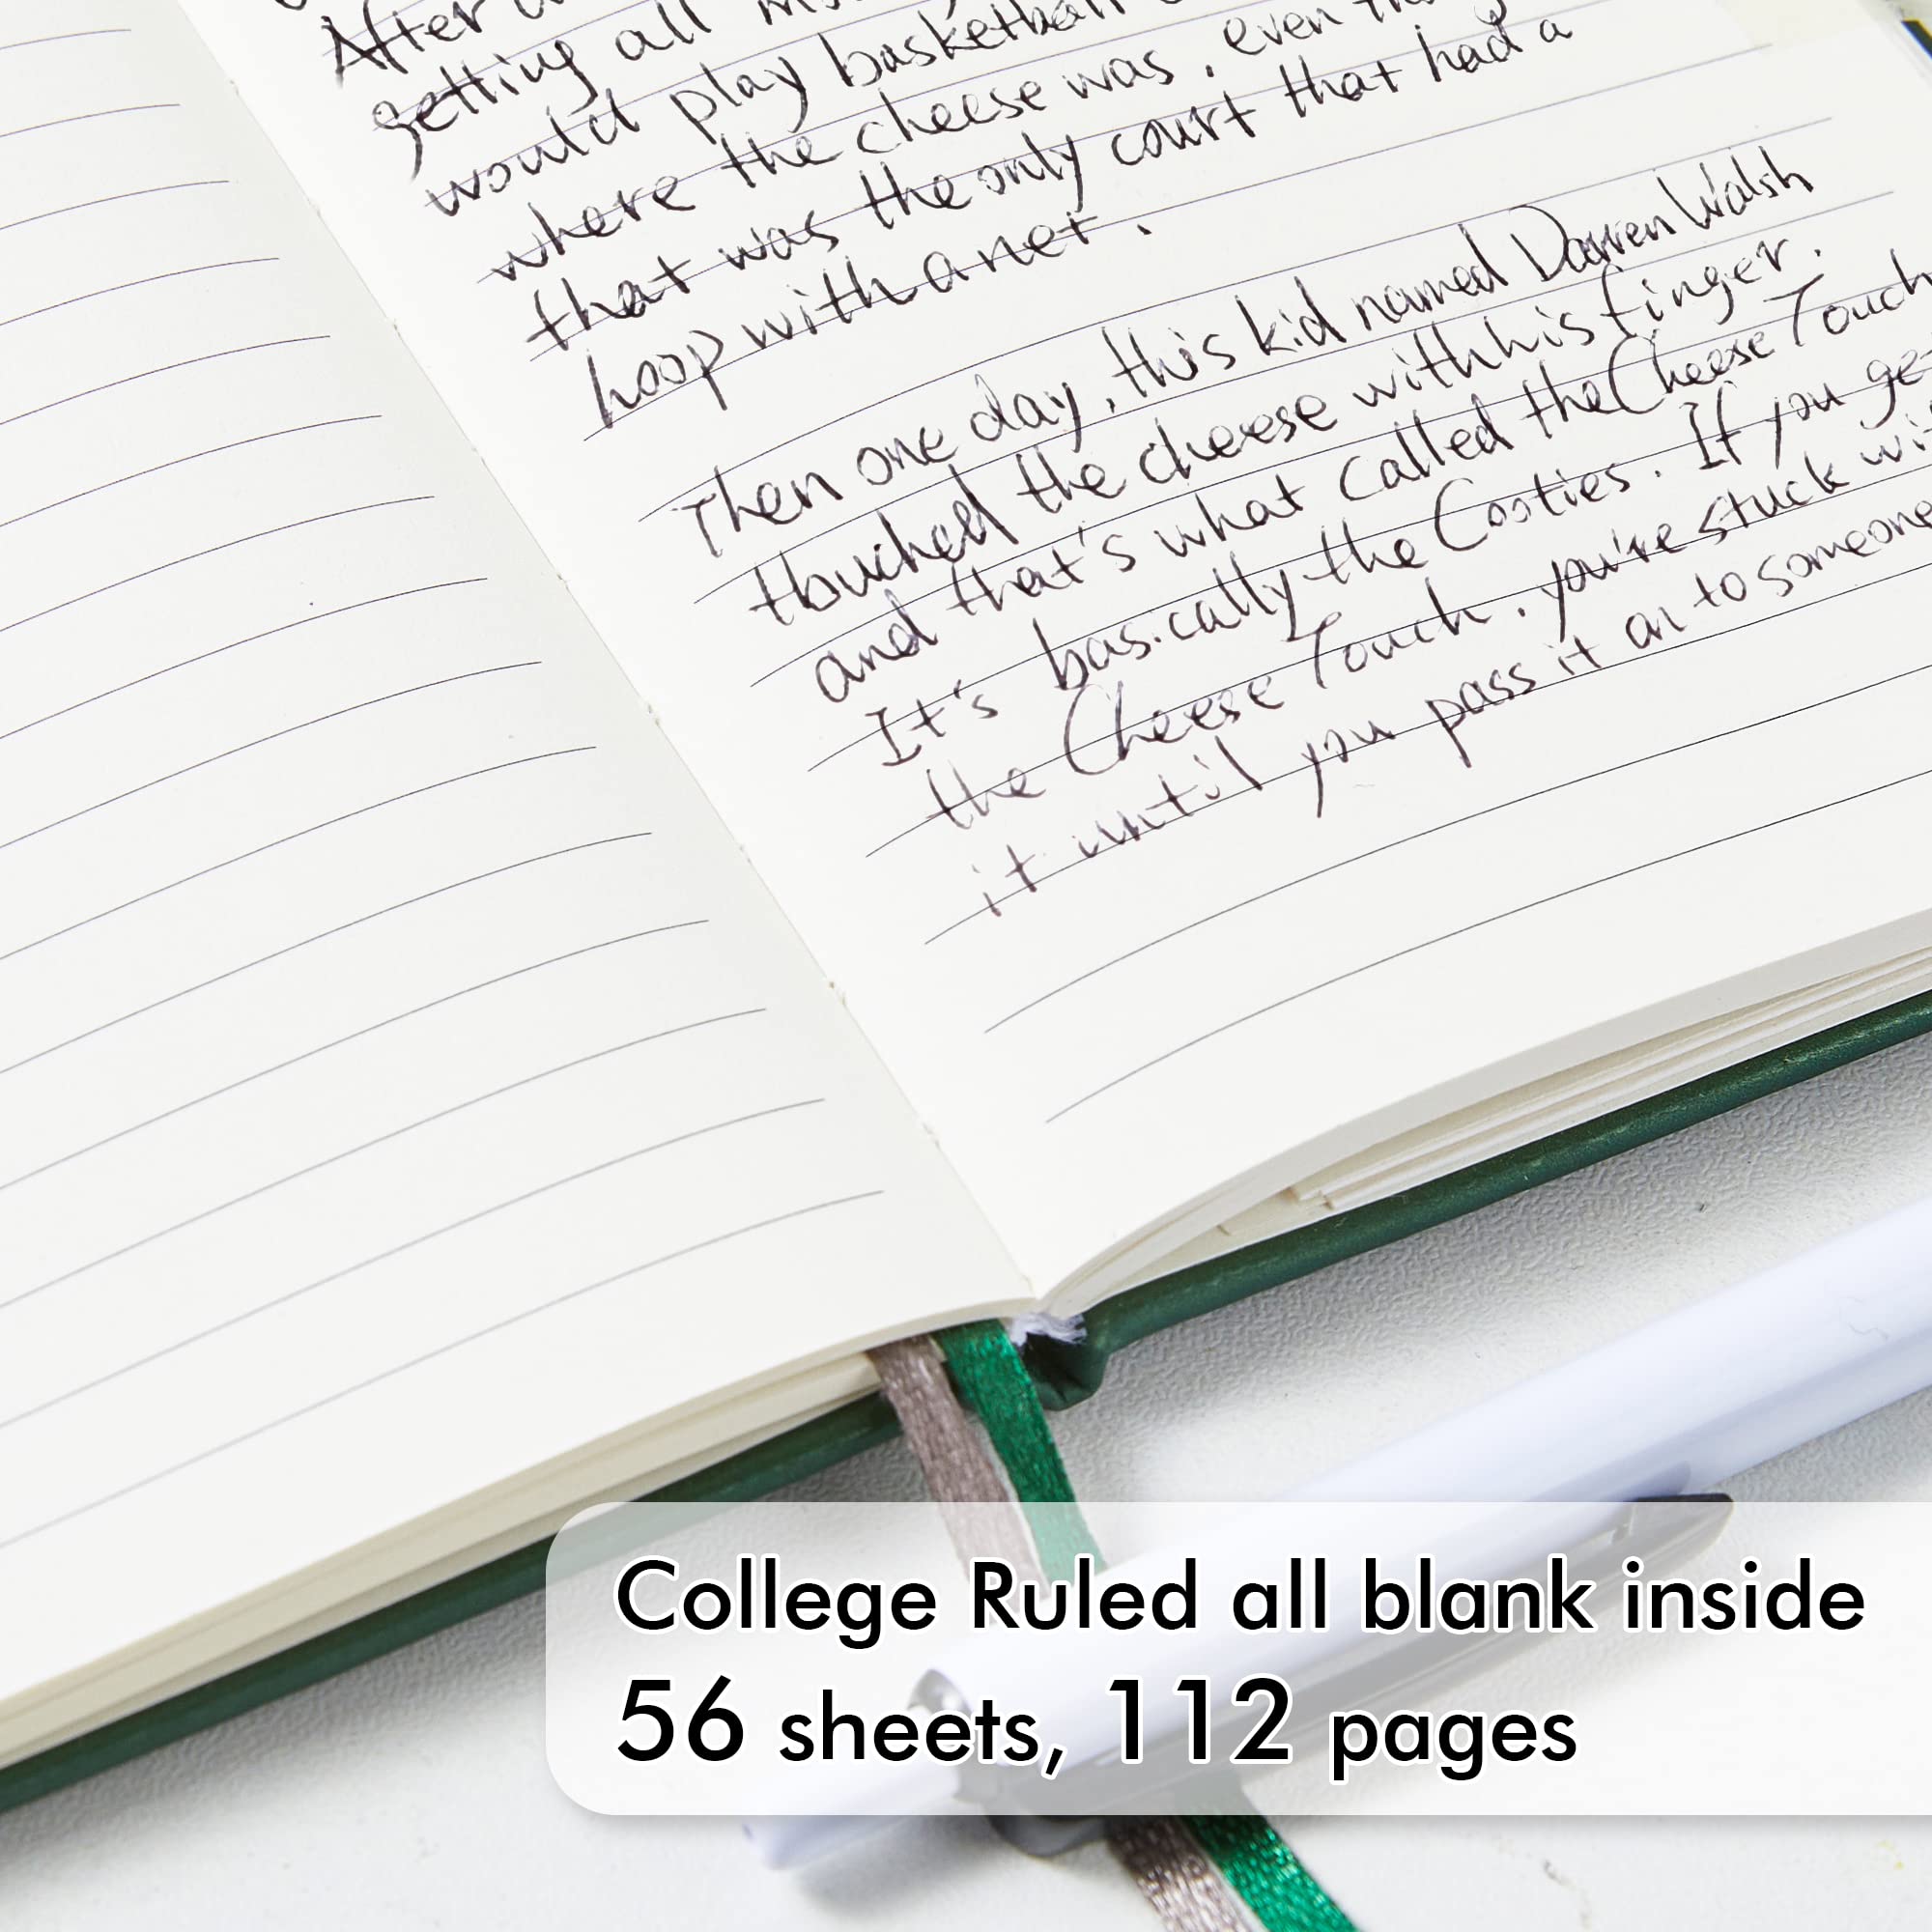 After
getting all
would play basketball
where the cheese was, even
that was the only court that had a
hoop with a net.
Then one day, this kid named Darren Walsh
touched the cheese with his finger.
and that's what called the Cheese Touch
It's basically the Cooties. If you get
the Cheese Touch, you're stuck wi
it until you pass it on to someone
College Ruled all blank inside
56 sheets, 112 pages